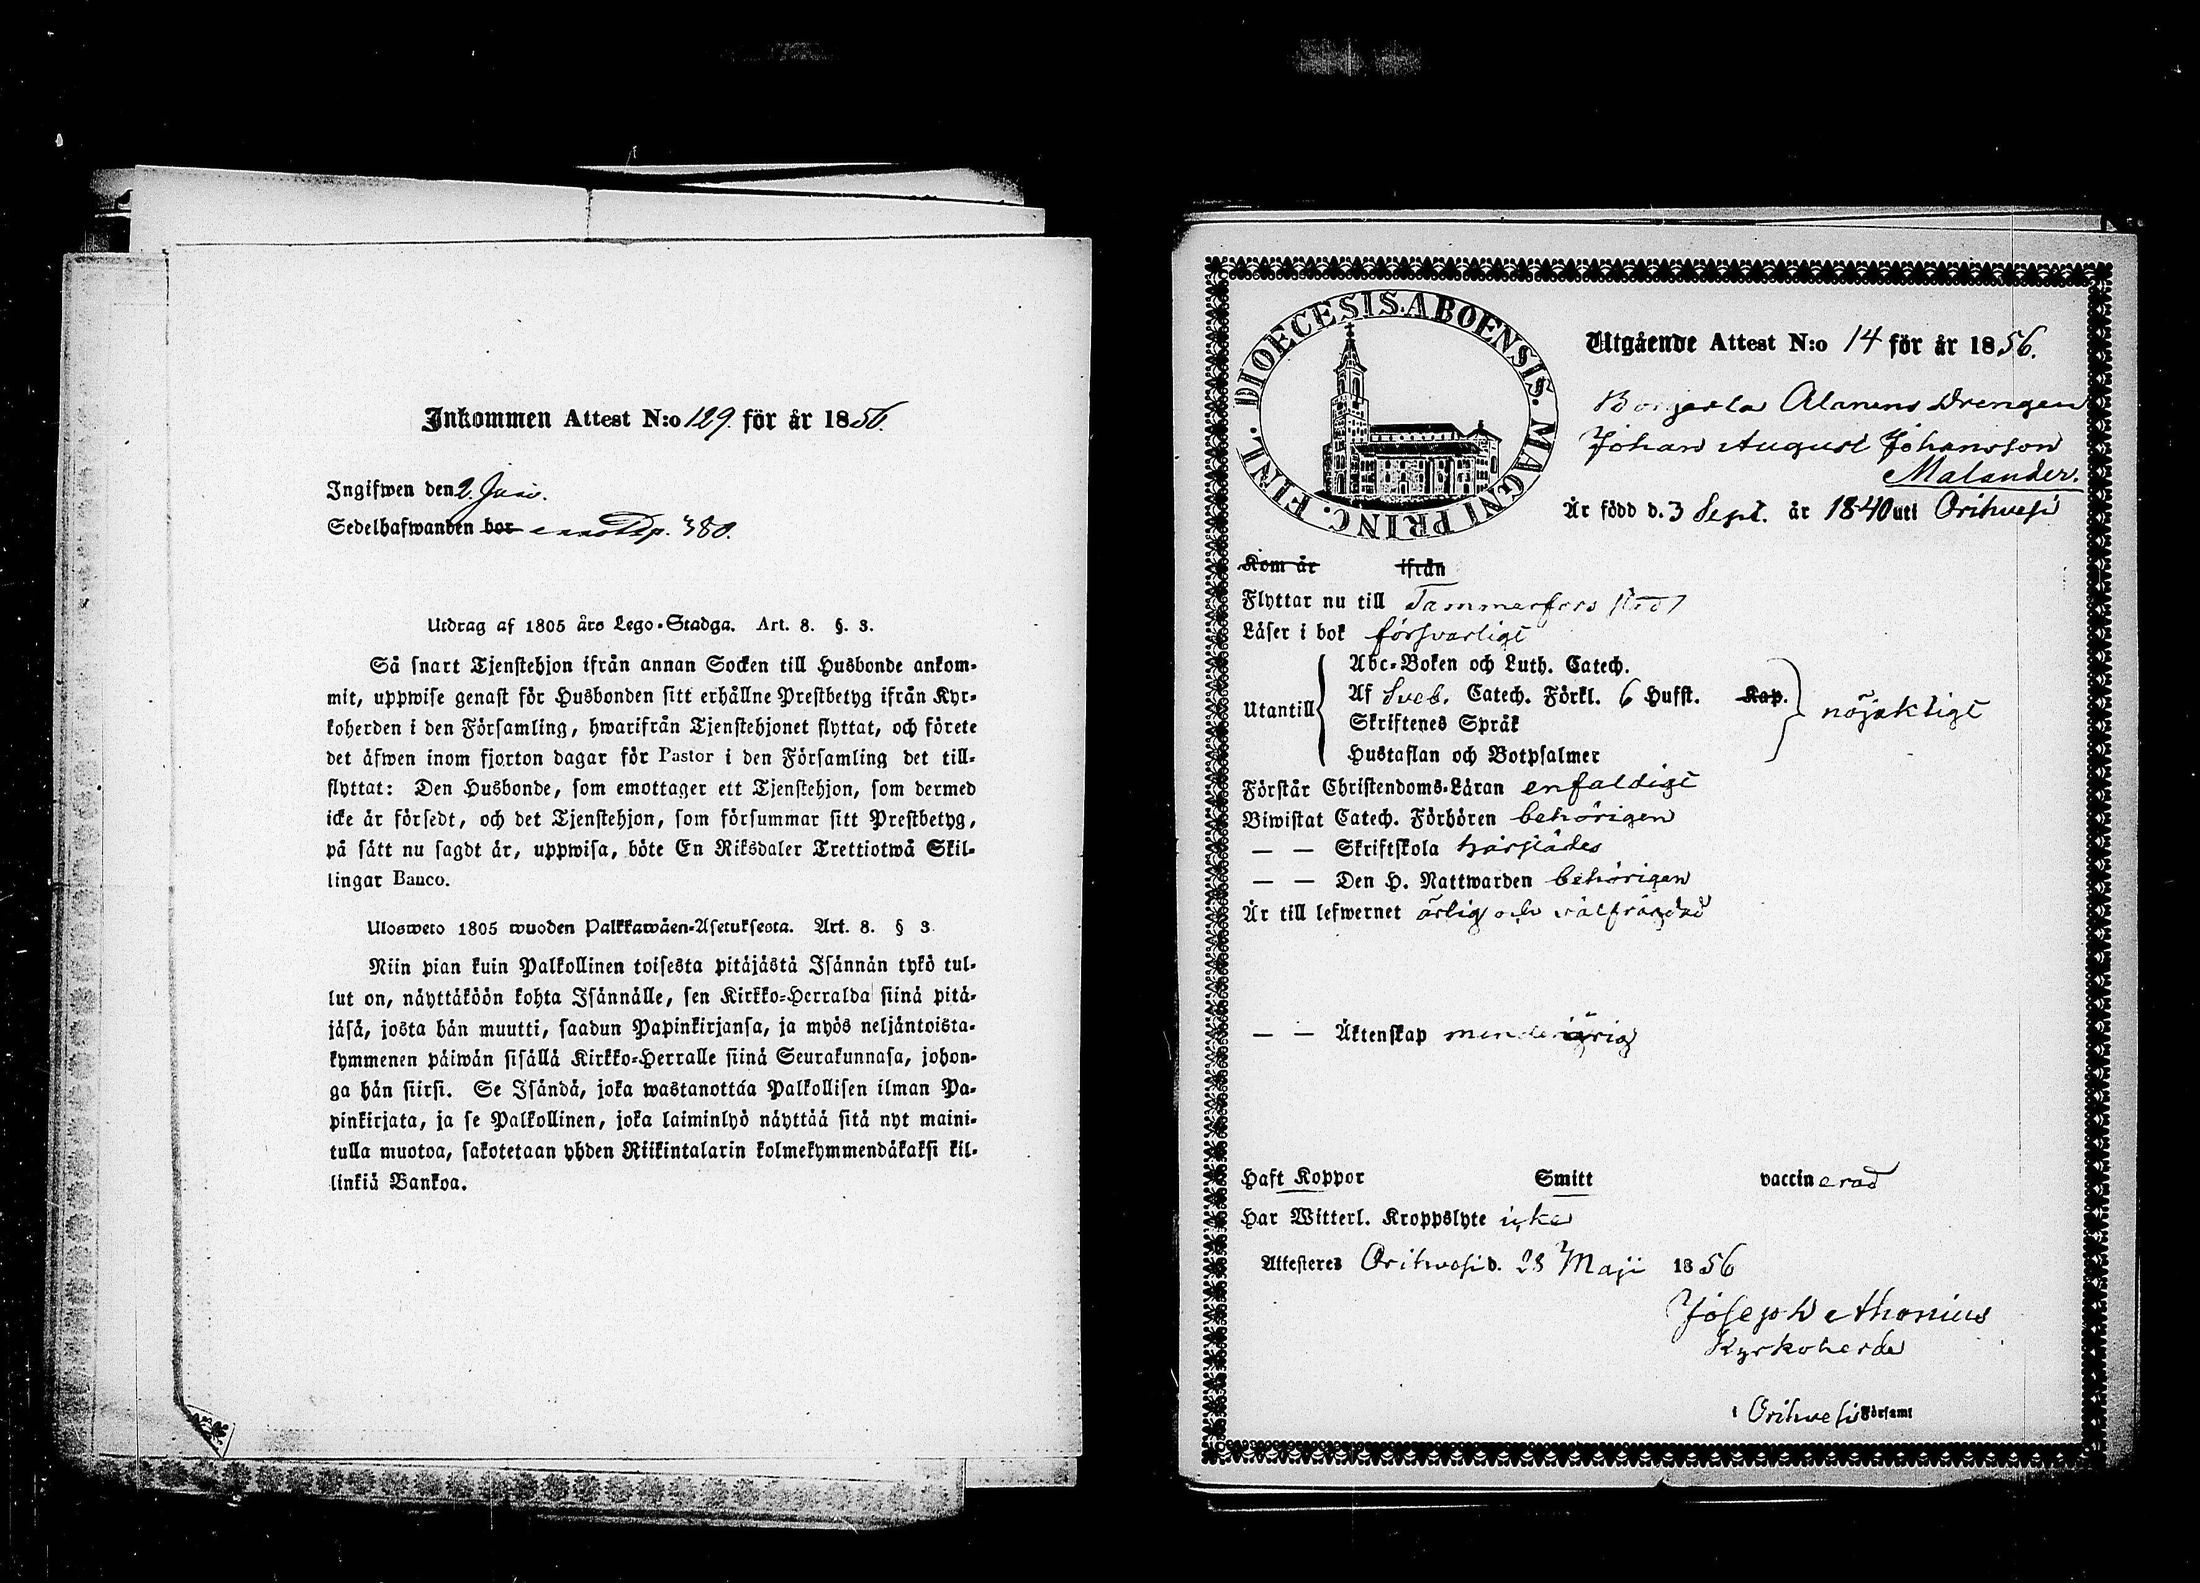 Inkommen Attest N:o 129. för år 1856.
Ingifwen den 2. Juni.
Sedelhafwanden bor
p. 380.
Utdrag af 1805 års Lego-Stadga. Art. 8. §. 3.
Så snart Tjenstehjon ifrån annan Socken till Husbonde ankom-
mit, uppwise genast för Husbonden sitt erhållne Prestbetyg ifrån Kyr-
koherden i den Församling, hwarifrån Tjenstehjonet flyttat, och förete
det äfwen inom fjorton dagar för Pastor i den Församling det till-
flyttat: Den Husbonde, som emottager ett Tjenstehjon, som dermed
icke är försedt, och det Tjenstehjon, som försummar sitt Prestbetyg,
på sätt nu sagdt är, uppwisa, böte En Riksdaler Trettiotwå Skil-
lingar Banco.
Ulosweto 1805 wuoden Palkkawäen-Asetuksesta. Art. 8. § 3.
Niin pian kuin Palkollinen toisesta pitäjästä Isännän tykö tul-
lut on, näyttäköön kohta Isännälle, sen Kirkko-Herralda siinä pitä-
jäsä, josta hän muutti, saadun Papinkirjansa, ja myös neljäntoista-
kymmenen päiwän sisällä Kirkko-Herralle siinä Seurakunnasa, johon-
ga hän siirsi. Se Isändä, joka wastanottaa Palkollisen ilman Pa-
pinkirjata, ja se Palkollinen, joka laiminlyö näyttää sitä nyt maini-
tulla muotoa, sakotetaan yhden Riikintalarin kolmekymmendäkaksi kil-
linkiä Bankoa.
DIOECESIS. ABOENSIS. MAGNI PRINC. FINL.
Utgående Attest N:o 14 för år 1856.
Alanens Drengen
Johan August Johansson
Malander.
Är född d. 3 Sept. år 1840 uti Orihvesi
Kom år ifrån
Flyttar nu till Tammerfors stad
Läser i bok försvarligt
Abc-Boken och Luth. Catech.
Utantill Af Sveb. Catech. Förkl. 6 Hufst. Kap. nöjaktigt
Skriftenes Språk
Hustaflan och Botpsalmer
Förstår Christendoms-Läran enfaldigt
Biwistat Catech. Förhören behörigen
— — Skriftskola härstädes
— — Den H. Nattwarden behörigen
Är till lefwernet ärlig och välfrägdad
— — Äktenskap minderårig
Haft Koppor Smitt vaccinerad
Har Witterl. Kroppslyte icke
Attesteres Orihvesi d. 28 Maji 1856
Joseph Dethonius
Kyrkoherde
i Orihvesi Församl